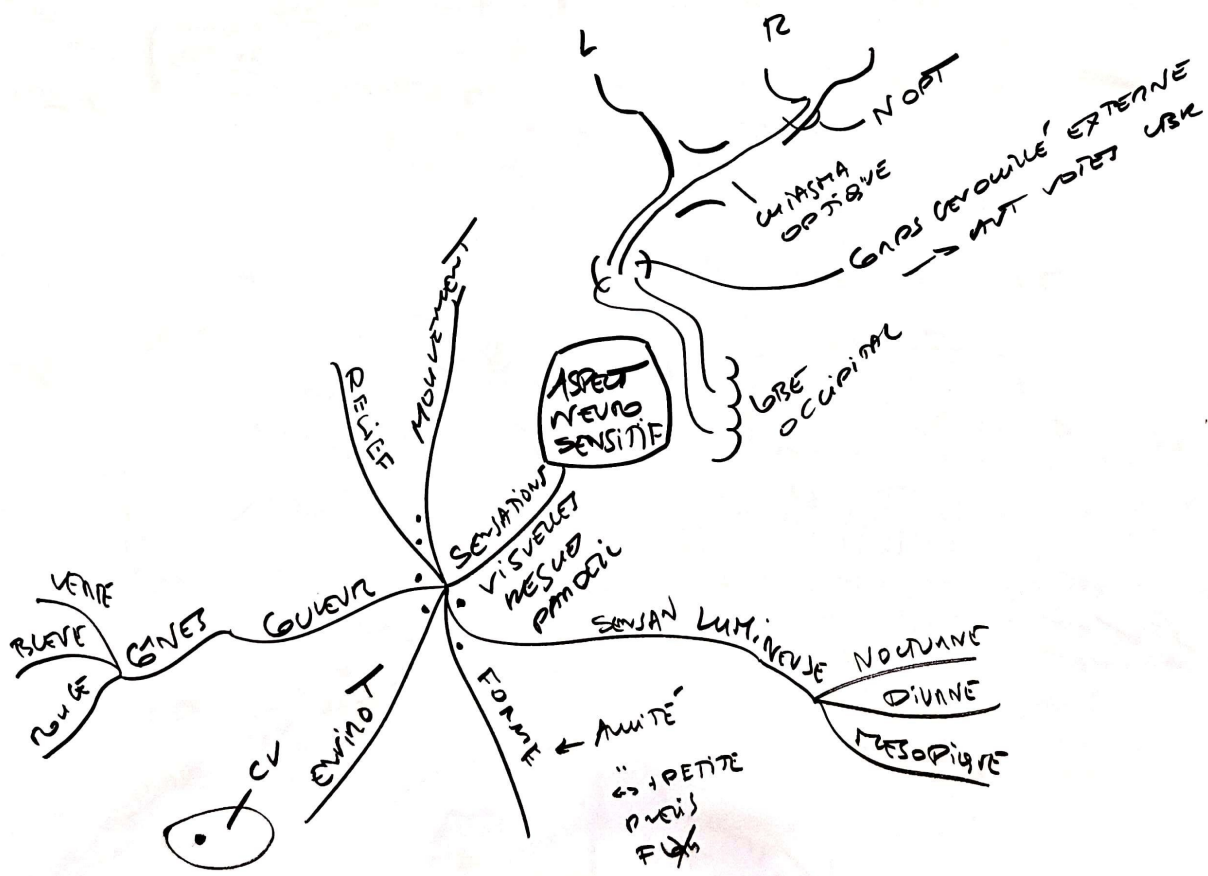 L
R
N OPT
CHIASMA
OPTIQUE
CORPS GENOUILLÉ EXTERNE
→ AUT VOIES
LOBE
OCCIPITAL
ASPECT
NEURO
SENSITIF
SENSATIONS
VISUELLES
PAR OEIL
MOUVEMENT
RELIEF
COULEUR
CÔNES
VERTE
BLEUE
ROUGE
ENVIROT
CV
FORME
← ACUITÉ
+ PETITE
SENSAN LUMINEUSE
NOCTURNE
DIURNE
MESOPIQUE